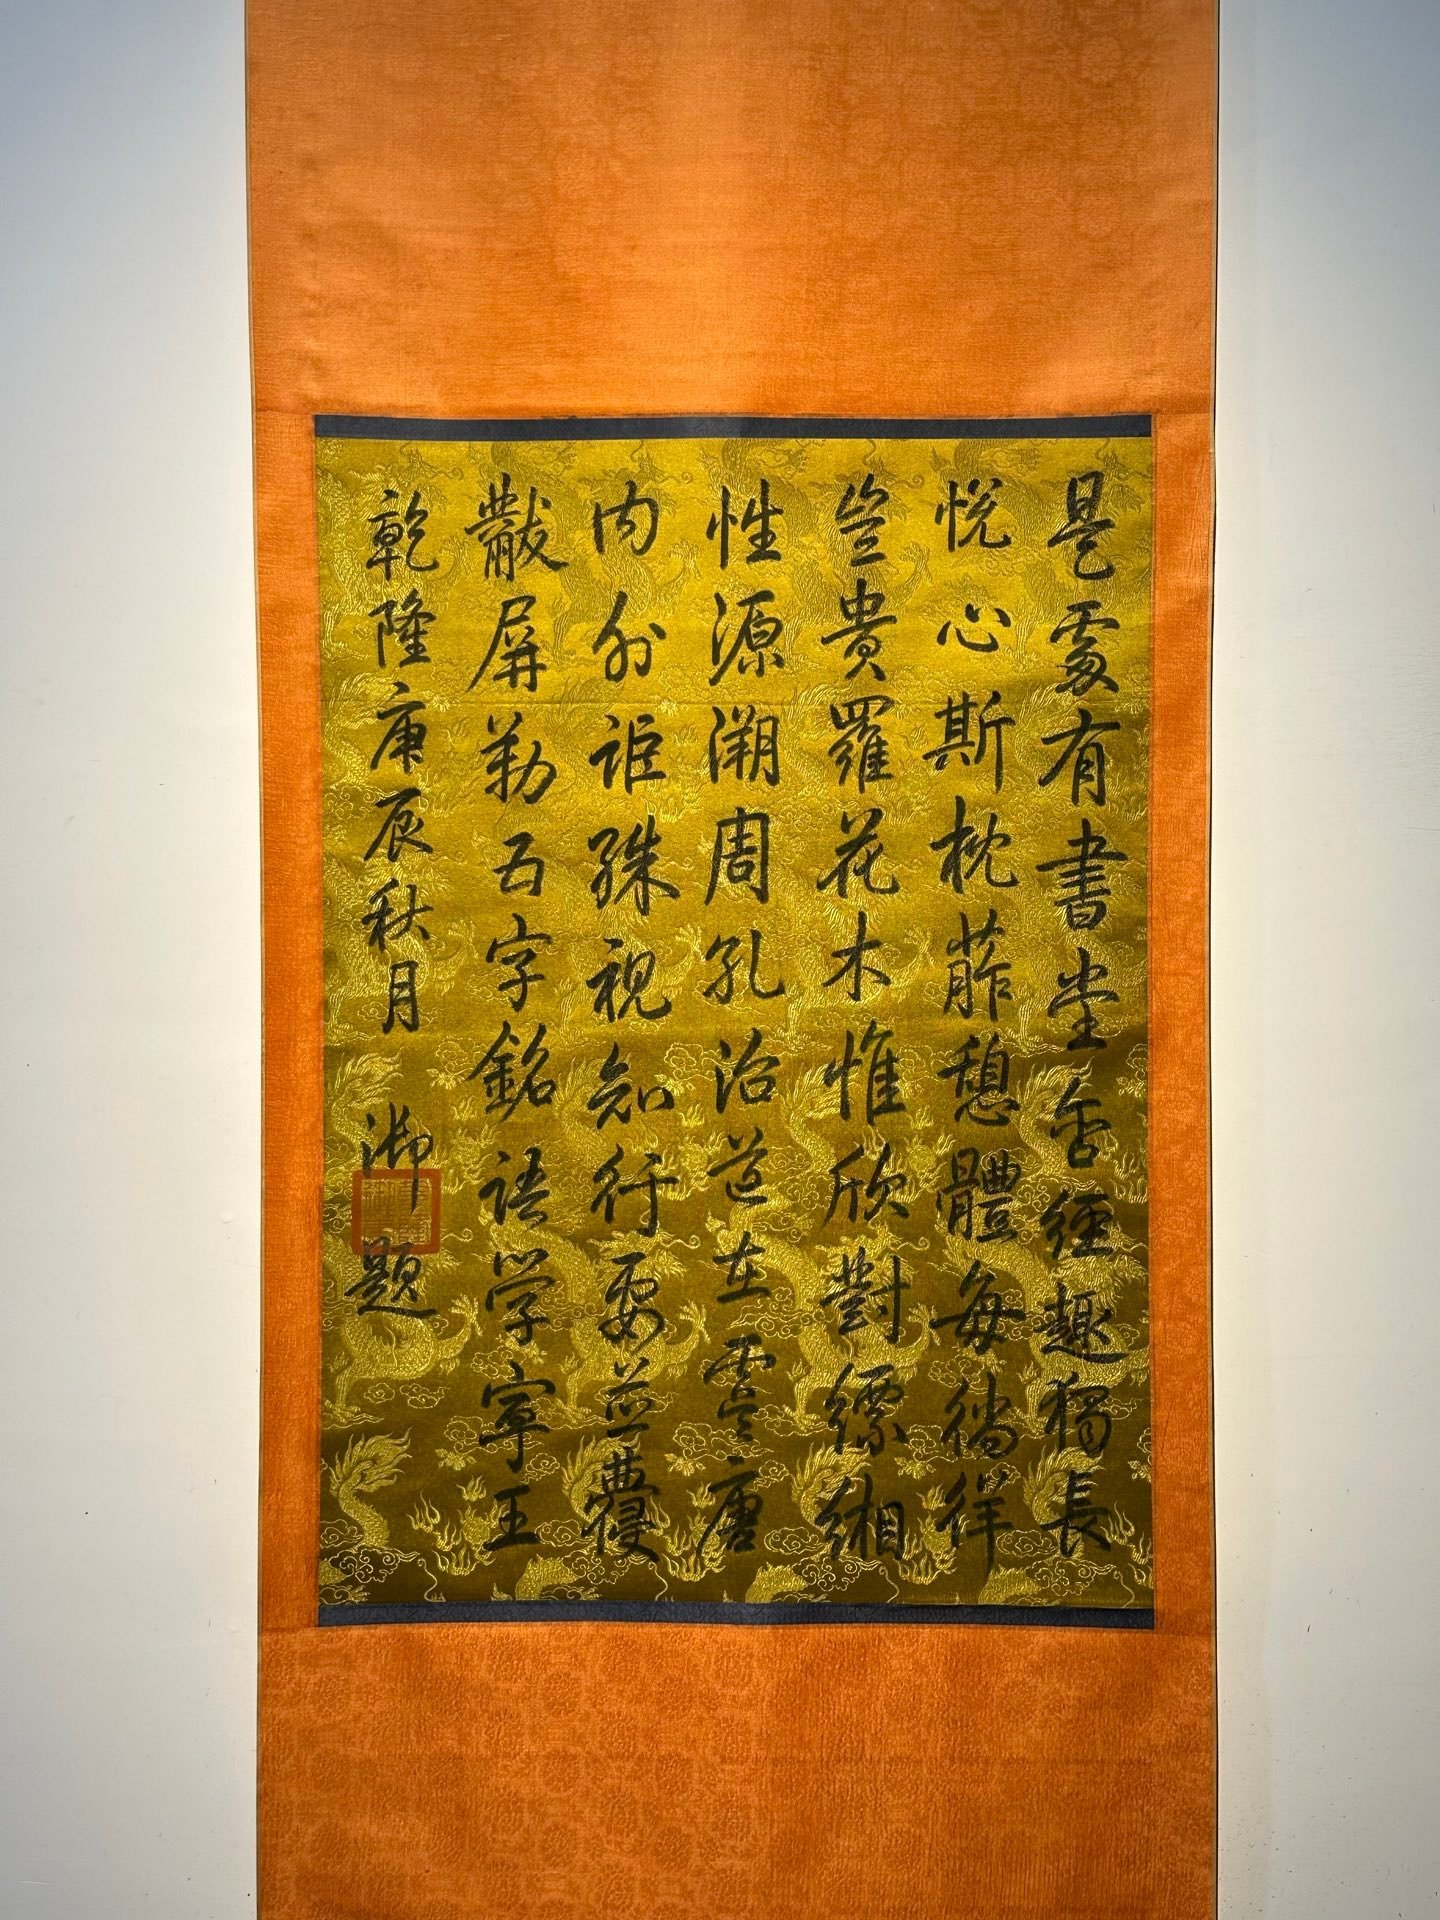 是處有書堂含經趣獨長
悅心斯枕葄憩體每徜徉
豈貴羅花木惟欣對縹緗
性源溯周孔治道在虞唐
内外詎殊視知行要並蘉
黻屏勒五字銘語學寧王
乾隆庚辰秋月 御題